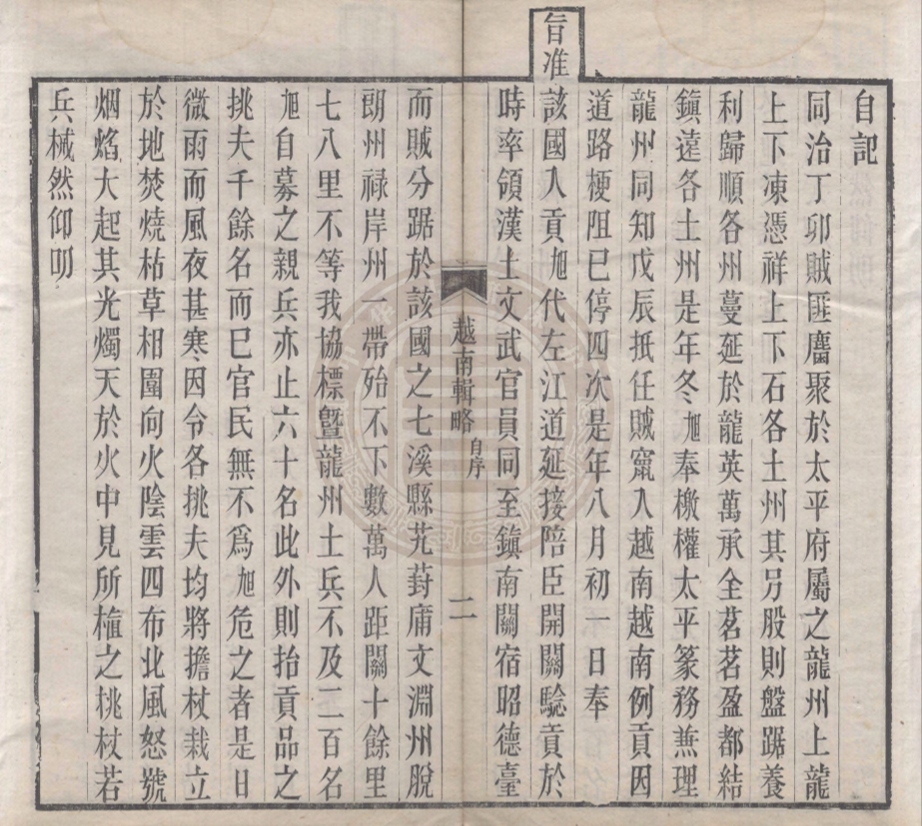 自記
同治丁卯賊匪麕聚於太平府屬之龍州上龍
上下凍憑祥上下石各土州其另股則盤踞養
利歸順各州蔓延於龍英萬承全茗茗盈都結
鎮遠各土州是年冬旭奉檄權太平篆務兼理
龍州同知戊辰抵任賊竄入越南越南例貢因
道路梗阻已停四次是年八月初一日奉
旨准該國入貢旭代左江道延接陪臣開關驗貢於
時率領漢土文武官員同至鎮南關宿昭德臺
越南輯略 自序 二
而賊分踞於該國之七溪縣艽葑庯文淵州脫
朗州祿岸州一帶殆不下數萬人距關十餘里
七八里不等我協標曁龍州土兵不及二百名
旭自募之親兵亦止六十名此外則抬貢品之
挑夫千餘名而已官民無不爲旭危之者是日
微雨而風夜甚寒因令各挑夫均將擔杖栽立
於地焚燒枯草相圍向火陰雲四布北風怒號
烟焰大起其光燭天於火中見所植之桃杖若
兵械然仰叨